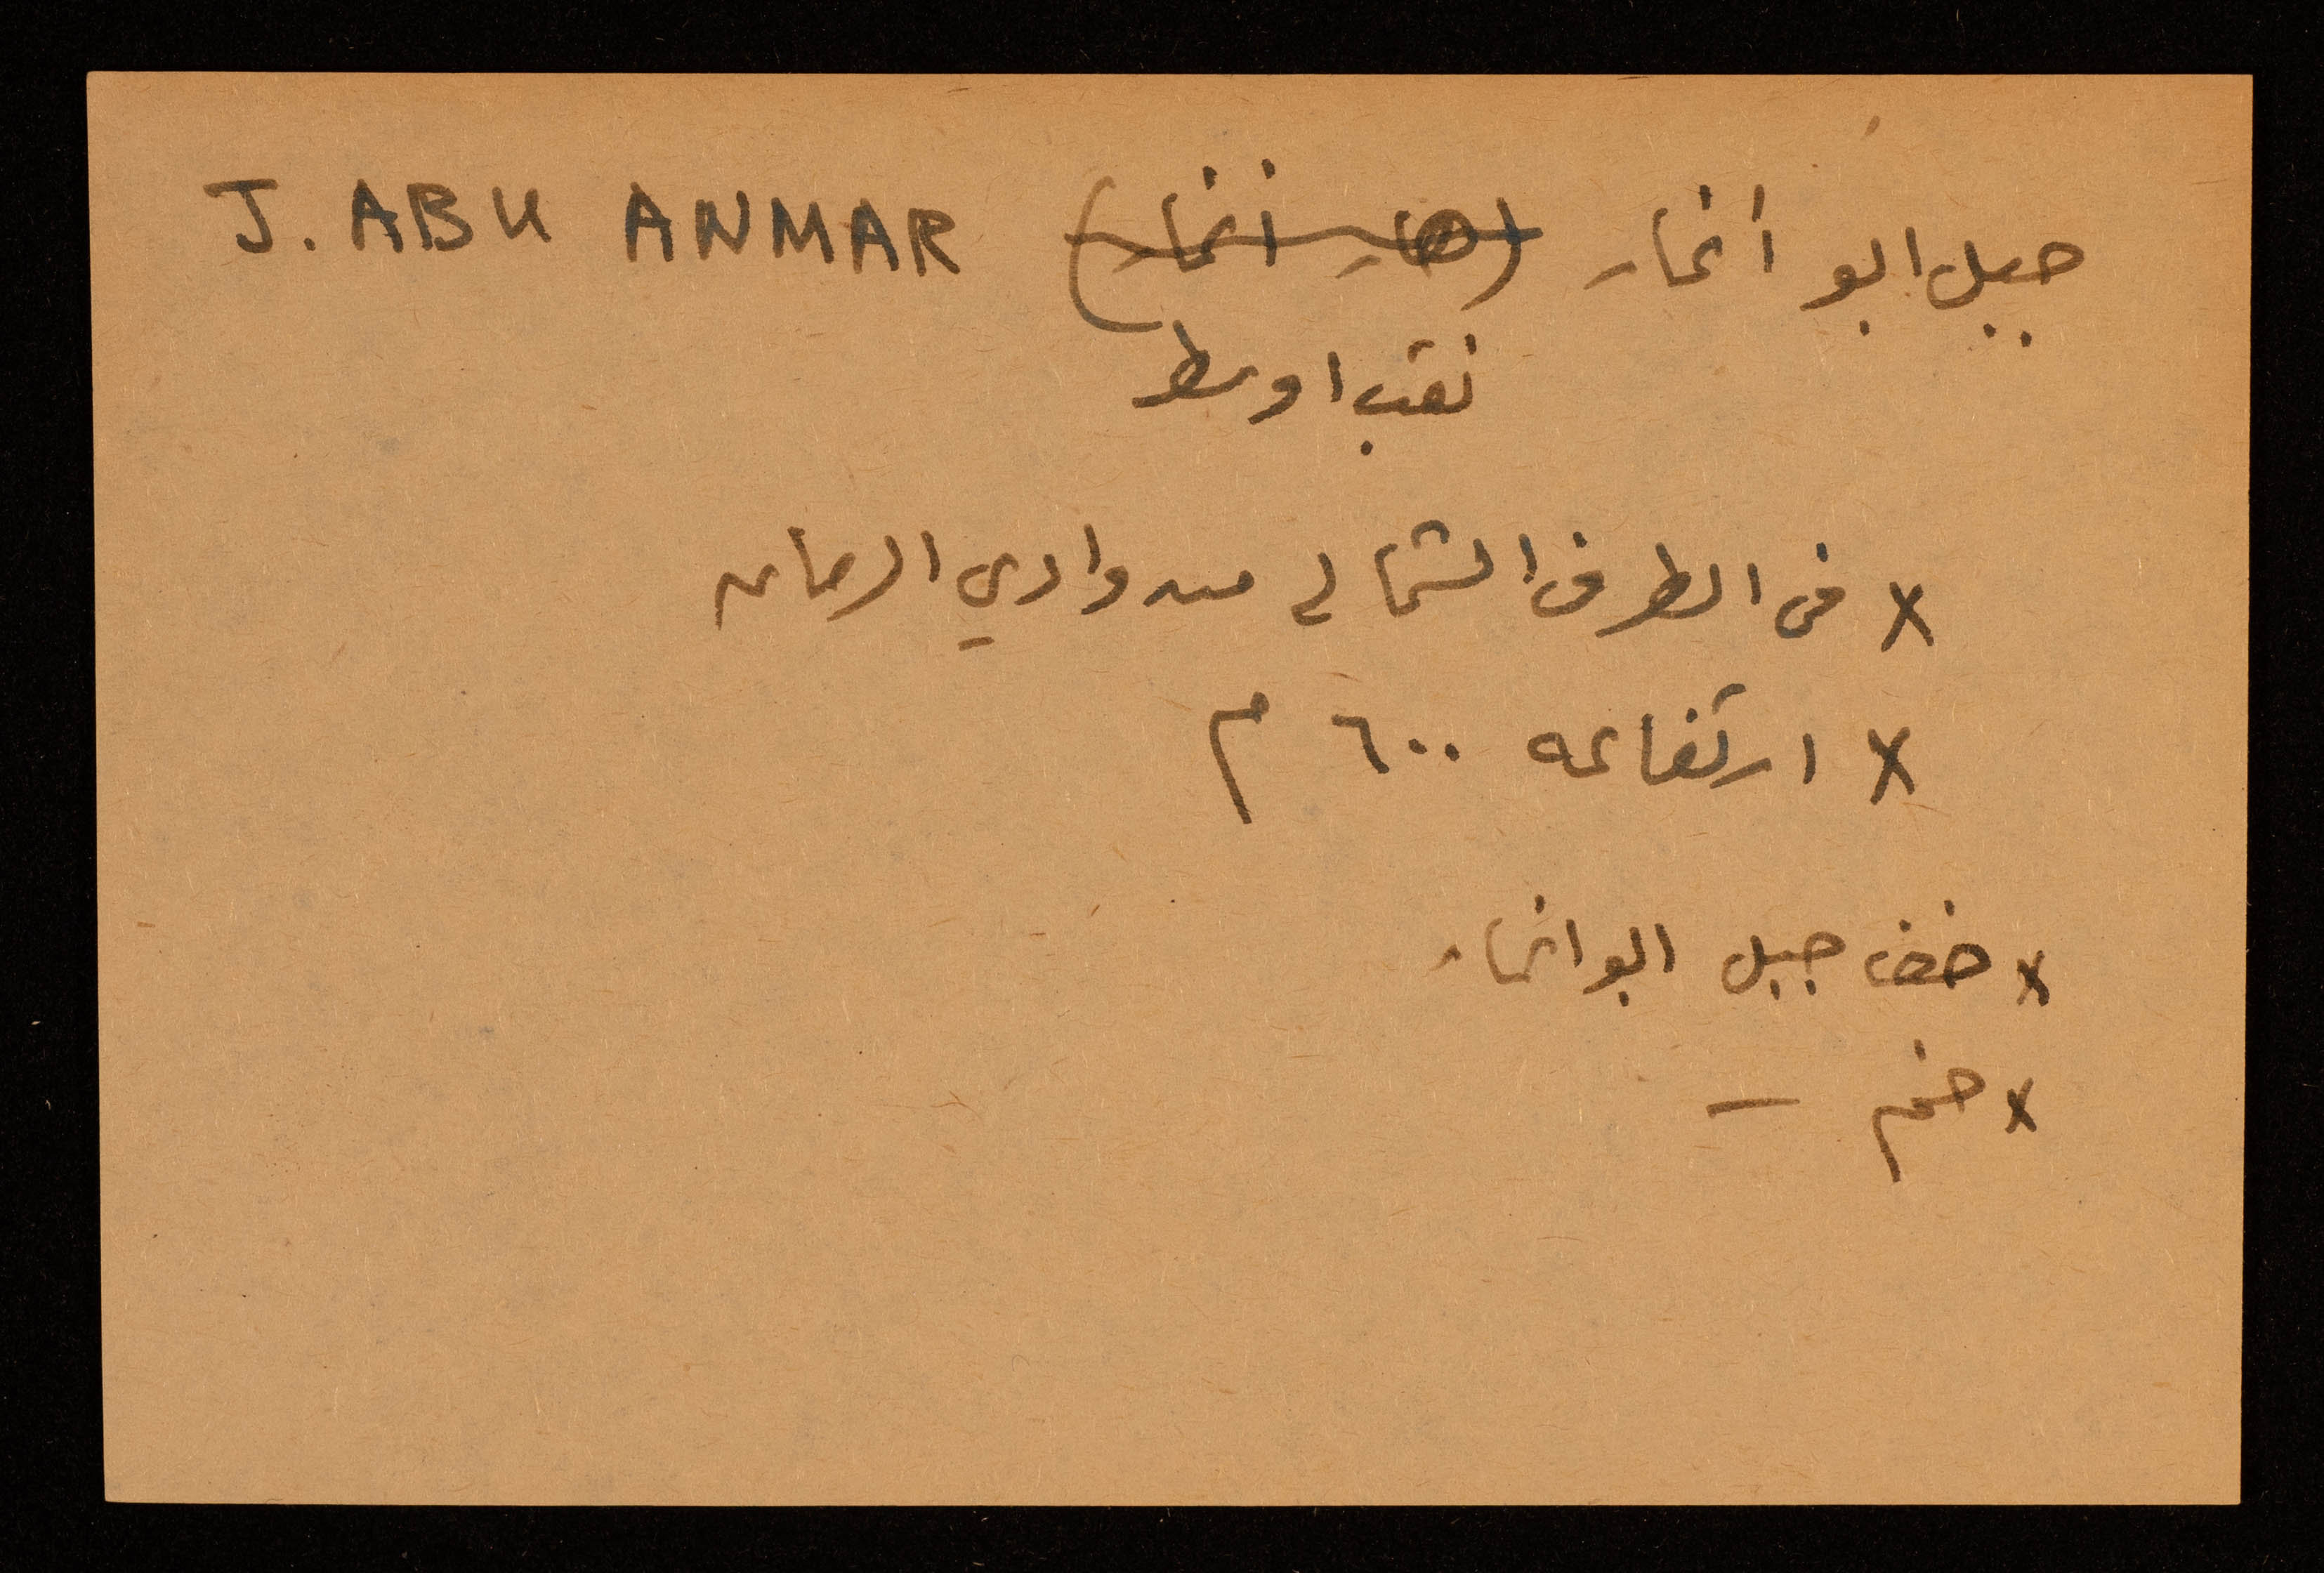 جبل ابو أنمار (هار انمار) J. ABU ANMAR
نقب اوسط
x في الطرف الشمالي من وادي الرمان
x ارتفاعه ٦٠٠ م
x خف جبل ابو انمار
x خم —